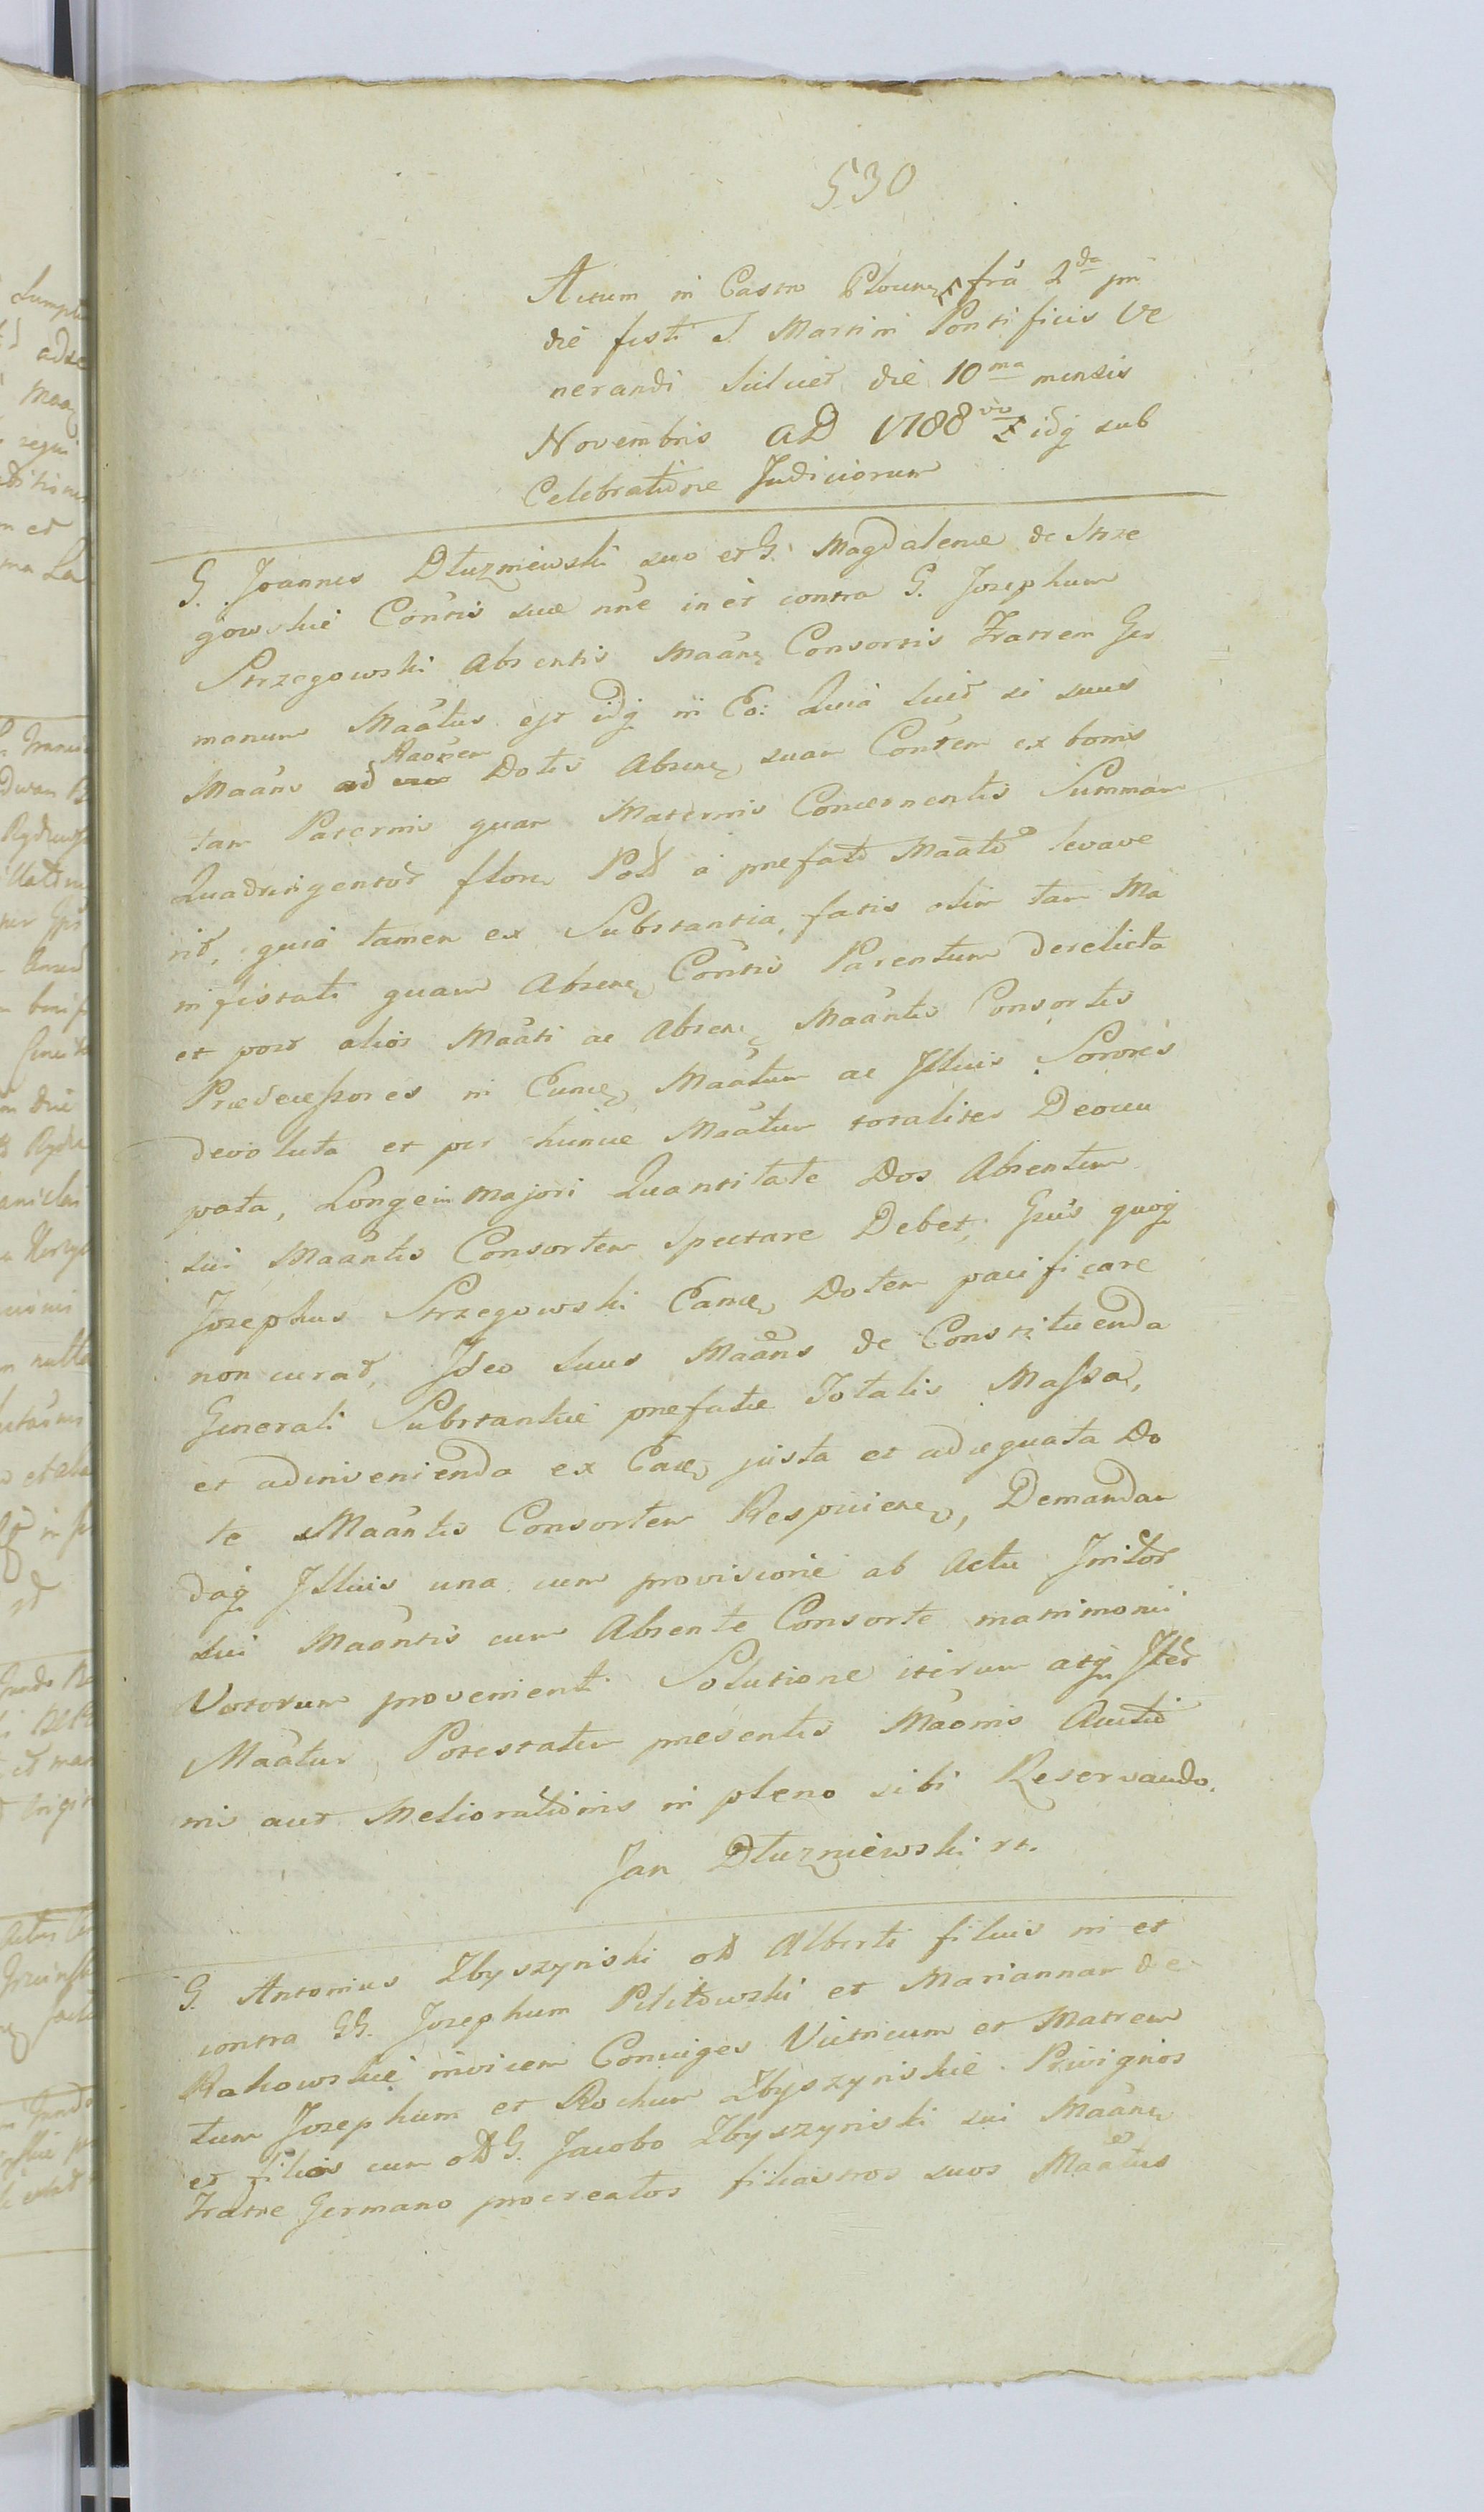 530
Actum in Castro Plocen fra 2da pri
die festi S Martini Pontificis Ve
nerandi scilicet die 10ma mensis
Novembris AD 1788vo idq sub
Celebratione Judiciorum
G. Joannes Dłuzniewski suo et G. Magdalenæ de Strze
gowskie Contis suæ nne in et contra G. Josephum
Strzegowski Absentis Maan Consortis Fratrem Ger
manum Maatus est idq in Eo: Quia licet si suus
Maans ad Raonem Dotis Absen suam Contem ex bonis
tam Paternis quam Maternis Concernentis Summam
Quadringentor flor Pol a prefato Maato levave
rit, quia tamen ex Substantia, fatis olim tam Ma
gistrati quam Absen Contis Parentum derelicta
et post alios Maati ac Absen Maantis Consortis
Prædecessores in Eunc Maatum ac Illius Sorores
devoluta et per hunce Maatum totaliter Deoccu
pata, Longe in majori Quantitate Dos Absentem
sui Maantis Consortem spectare Debet, Gsus quoq
Josephus Strzegowski Eanc Dotem pacificare
non curat, Ideo suus Maans de Constituenda
Generali Substantiæ prefatæ Totalis Massa,
et adinvenienda ex Eac justa et adæquata Do
te Maantis Consortem Respicien, Demandan
daq Illius una cum provisione ab Actu Initor
sui Maantis cum Absente Consorte matrimonii
Votorum provenienti Solutione iterum atq Iter
Maatur Potestatem presentis Maonis Auctio
nis aut Meliorationis in pleno sibi Reservando.
Jan Dłuzniewski rt.
G. Antonius Zbyszynski oD Alberti filius in et
contra GG. Josephum Pilitowski et Mariannam de
Rakowskie invicem Conuiges Vitricum et Matrem
tum Josephum et Rochum Zbyszynskie Privignos
et filios cum oD G. Jacobo Zbyszynski sui Maan
Fratre Germano procreatos filiastros suos Maatus